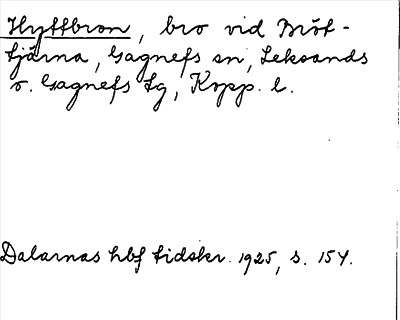 Hyttbron, bro vid Mröt-
tjärna, Gagnefs sn, Leksands
o. Gagnefs tg, Kopp. l.
Dalarnas hbf tidskr. 1925, s. 154.